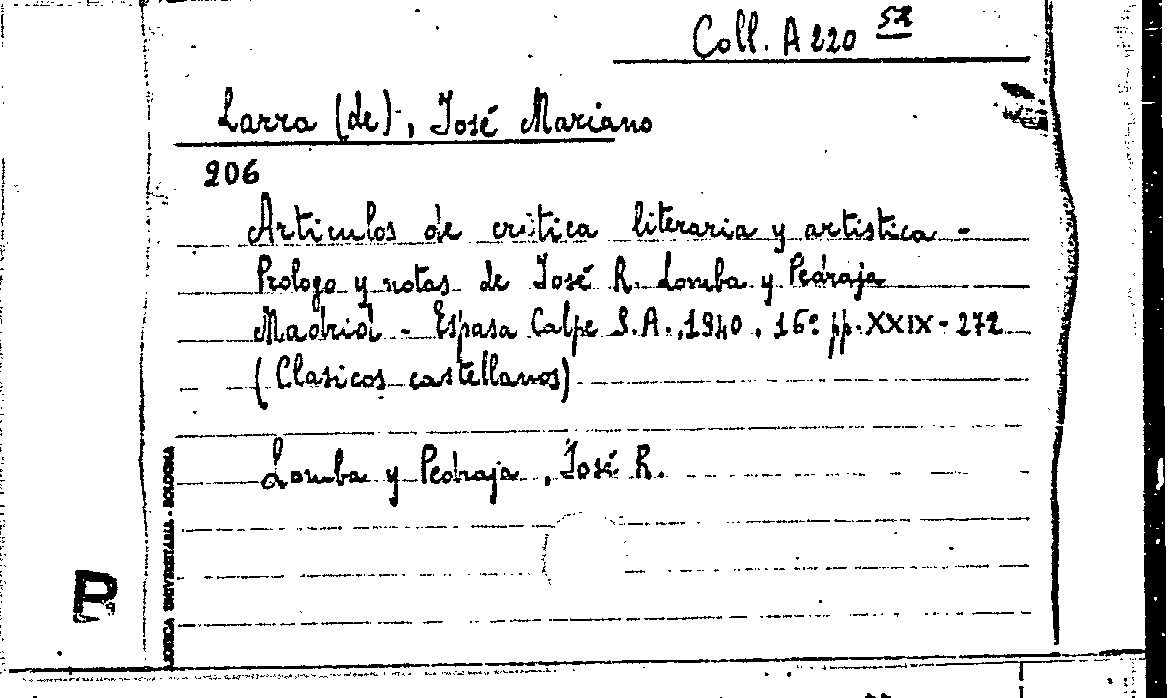 Coll. A 220 52
Larra (de), José Mariano
206
Articulos de critica literaria y artistica -
Prologo y notas de José R. Lomba y Pedraja
Madrid - Espasa Calpe S.A., 1940. 16° pp. XXIX - 272
(Clasicos castellanos)
Lomba y Pedraja, José R.
UNIVERSITARIA - BOLOGNA